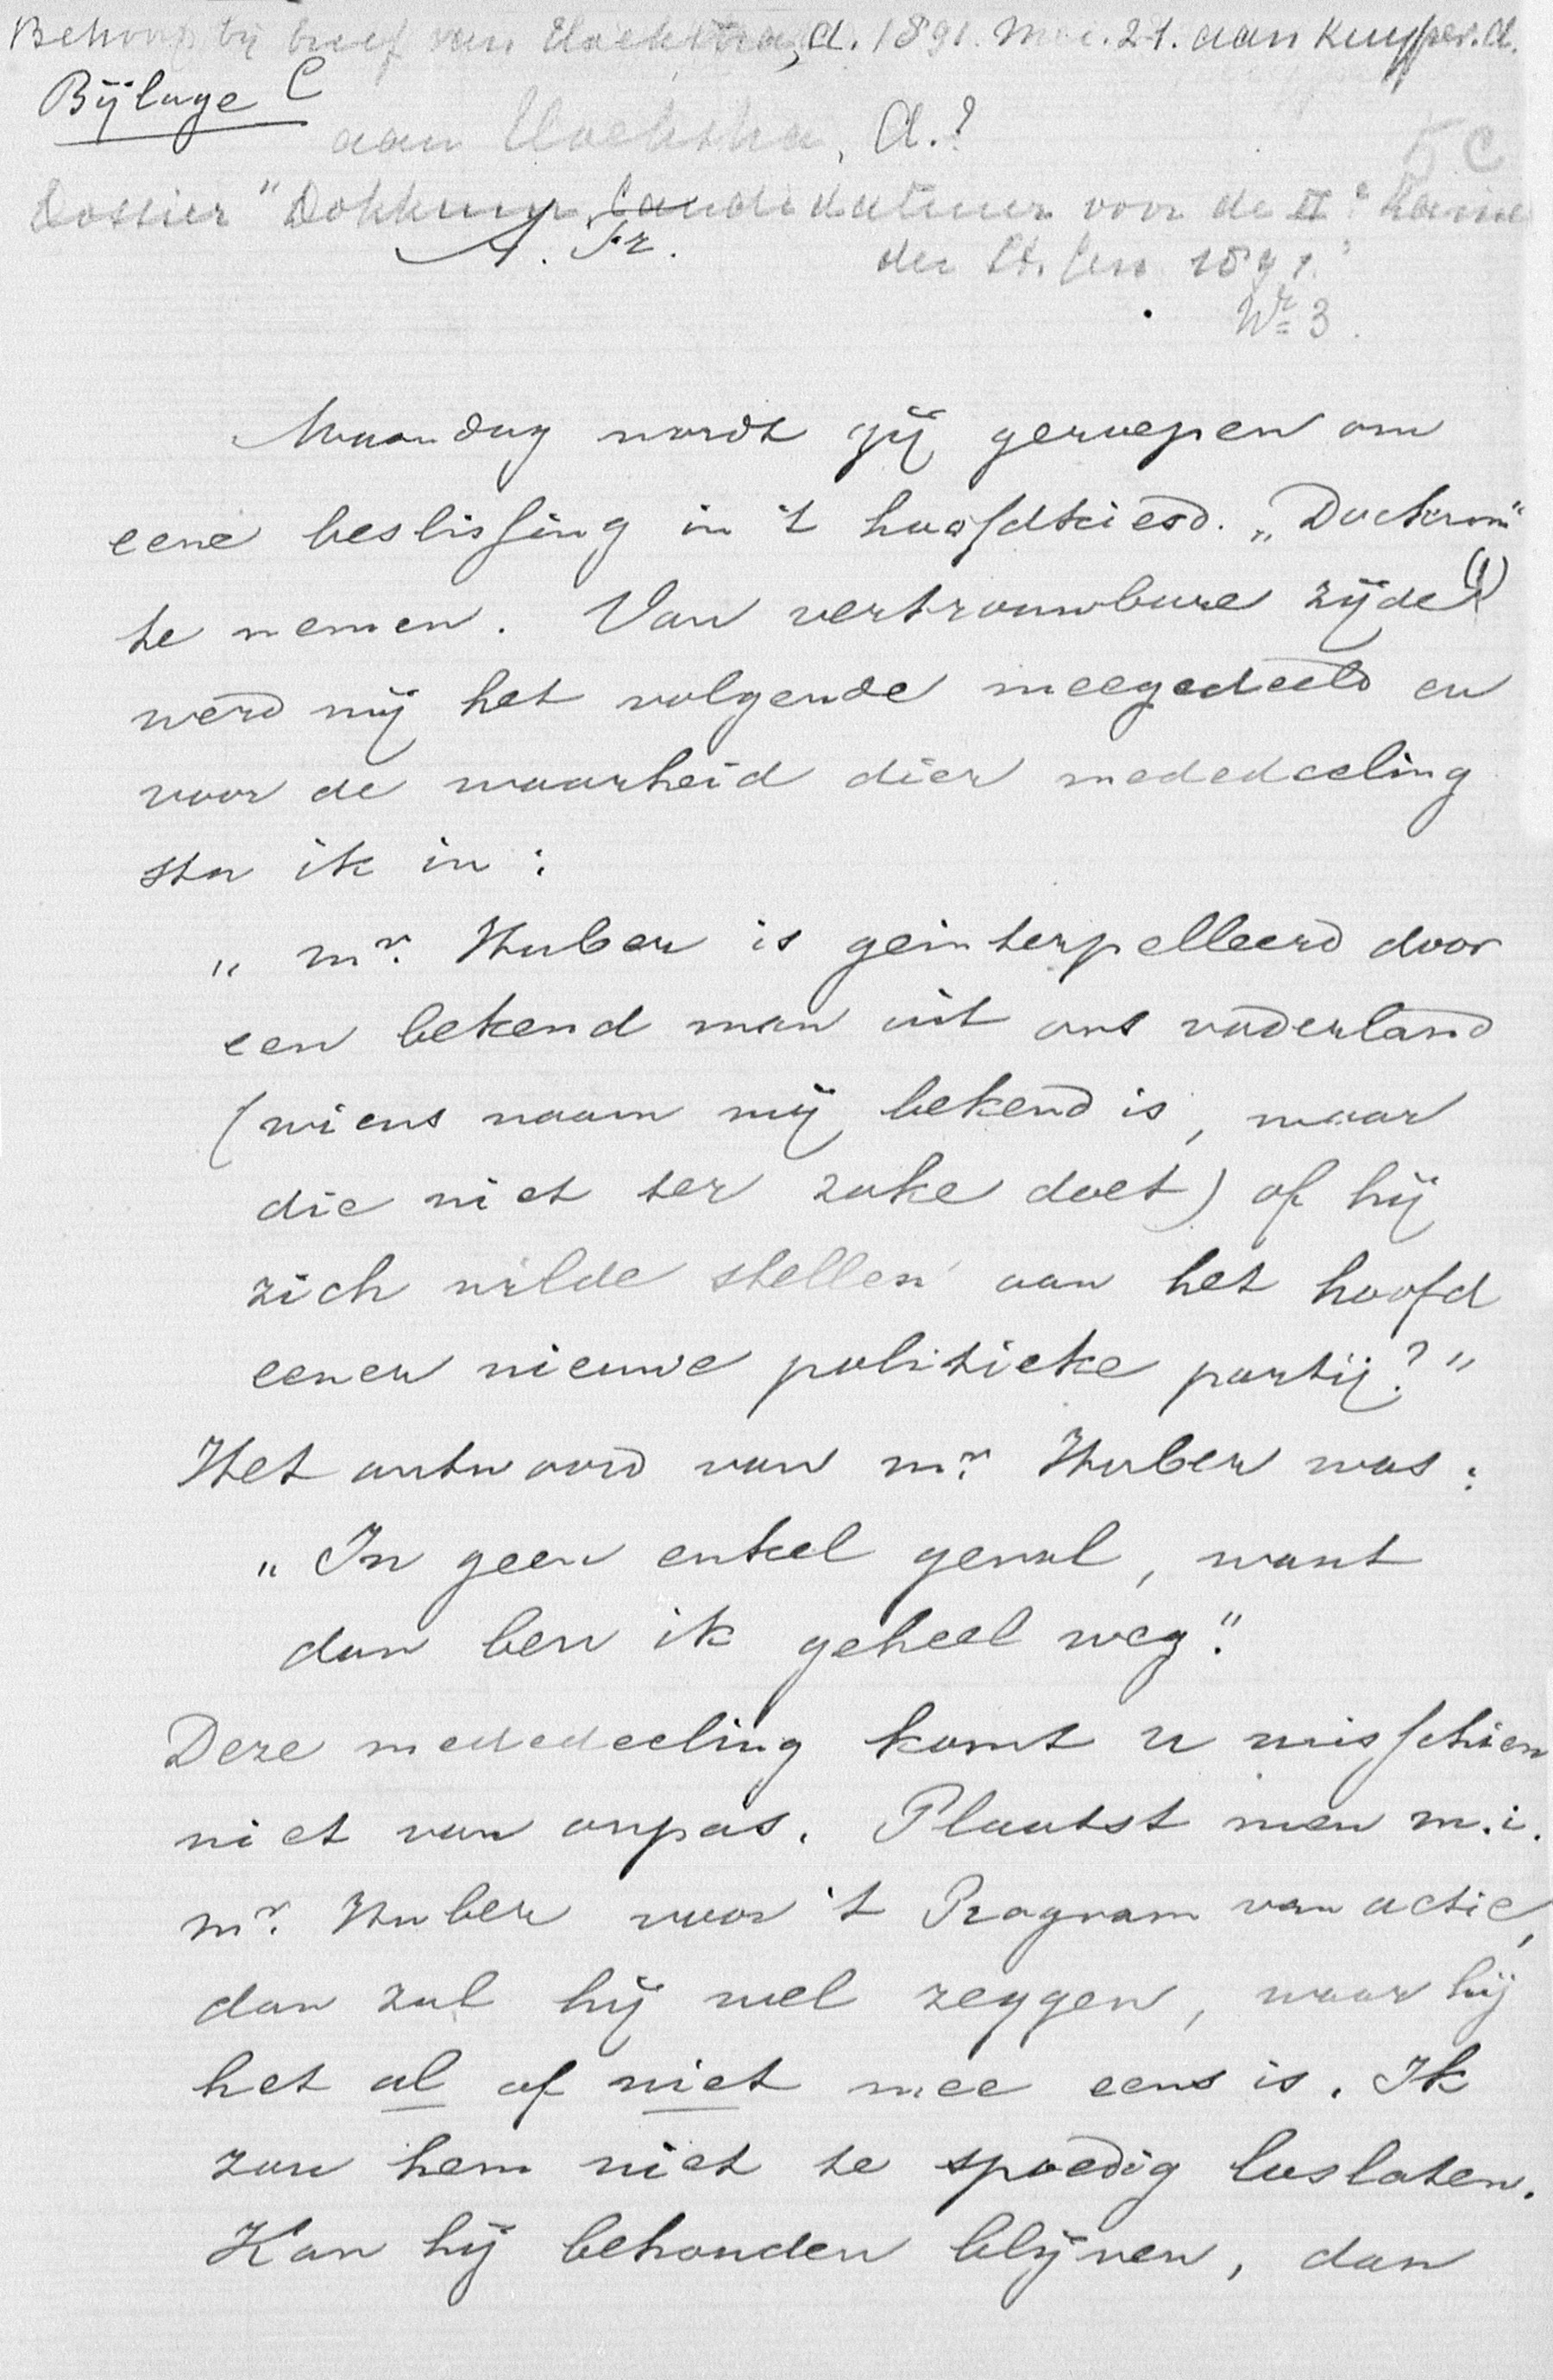 Behoort bij brief van Hoekstra, d. 1891. Mei. 21. aan Kuyper. A.
Bijlage C
aan Hoekstra, A.?
5 C
Dossier "Dokkum candidaturen voor de IIe Kamer
A. Fr.
der St. Gen 1891"
Nr 3.
Maandag wordt gij geroepen om
eene beslissing in 't hoofdkiesd. „Dockum"
te nemen. Van vertrouwbare zijde (1)
werd mij het volgende meegedeeld en
voor de waarheid dier mededeeling
sta ik in:
„Mr. Huber is geinterpelleerd door
een bekend man uit ons vaderland
(wiens naam mij bekend is, maar
die niet ter zake doet) of hij
zich wilde stellen aan het hoofd
eener nieuwe politieke partij?"
Het antwoord van Mr. Huber was:
„In geen enkel geval, want
dan ben ik geheel weg."
Deze mededeeling komt u misschien
niet van onpas. Plaatst men m.i.
Mr. Huber voor 't Program van actie,
dan zal hij wel zeggen, waar hij
het al of niet mee eens is. Ik
zou hem niet te spoedig loslaten.
Kan hij behouden blijven, dan